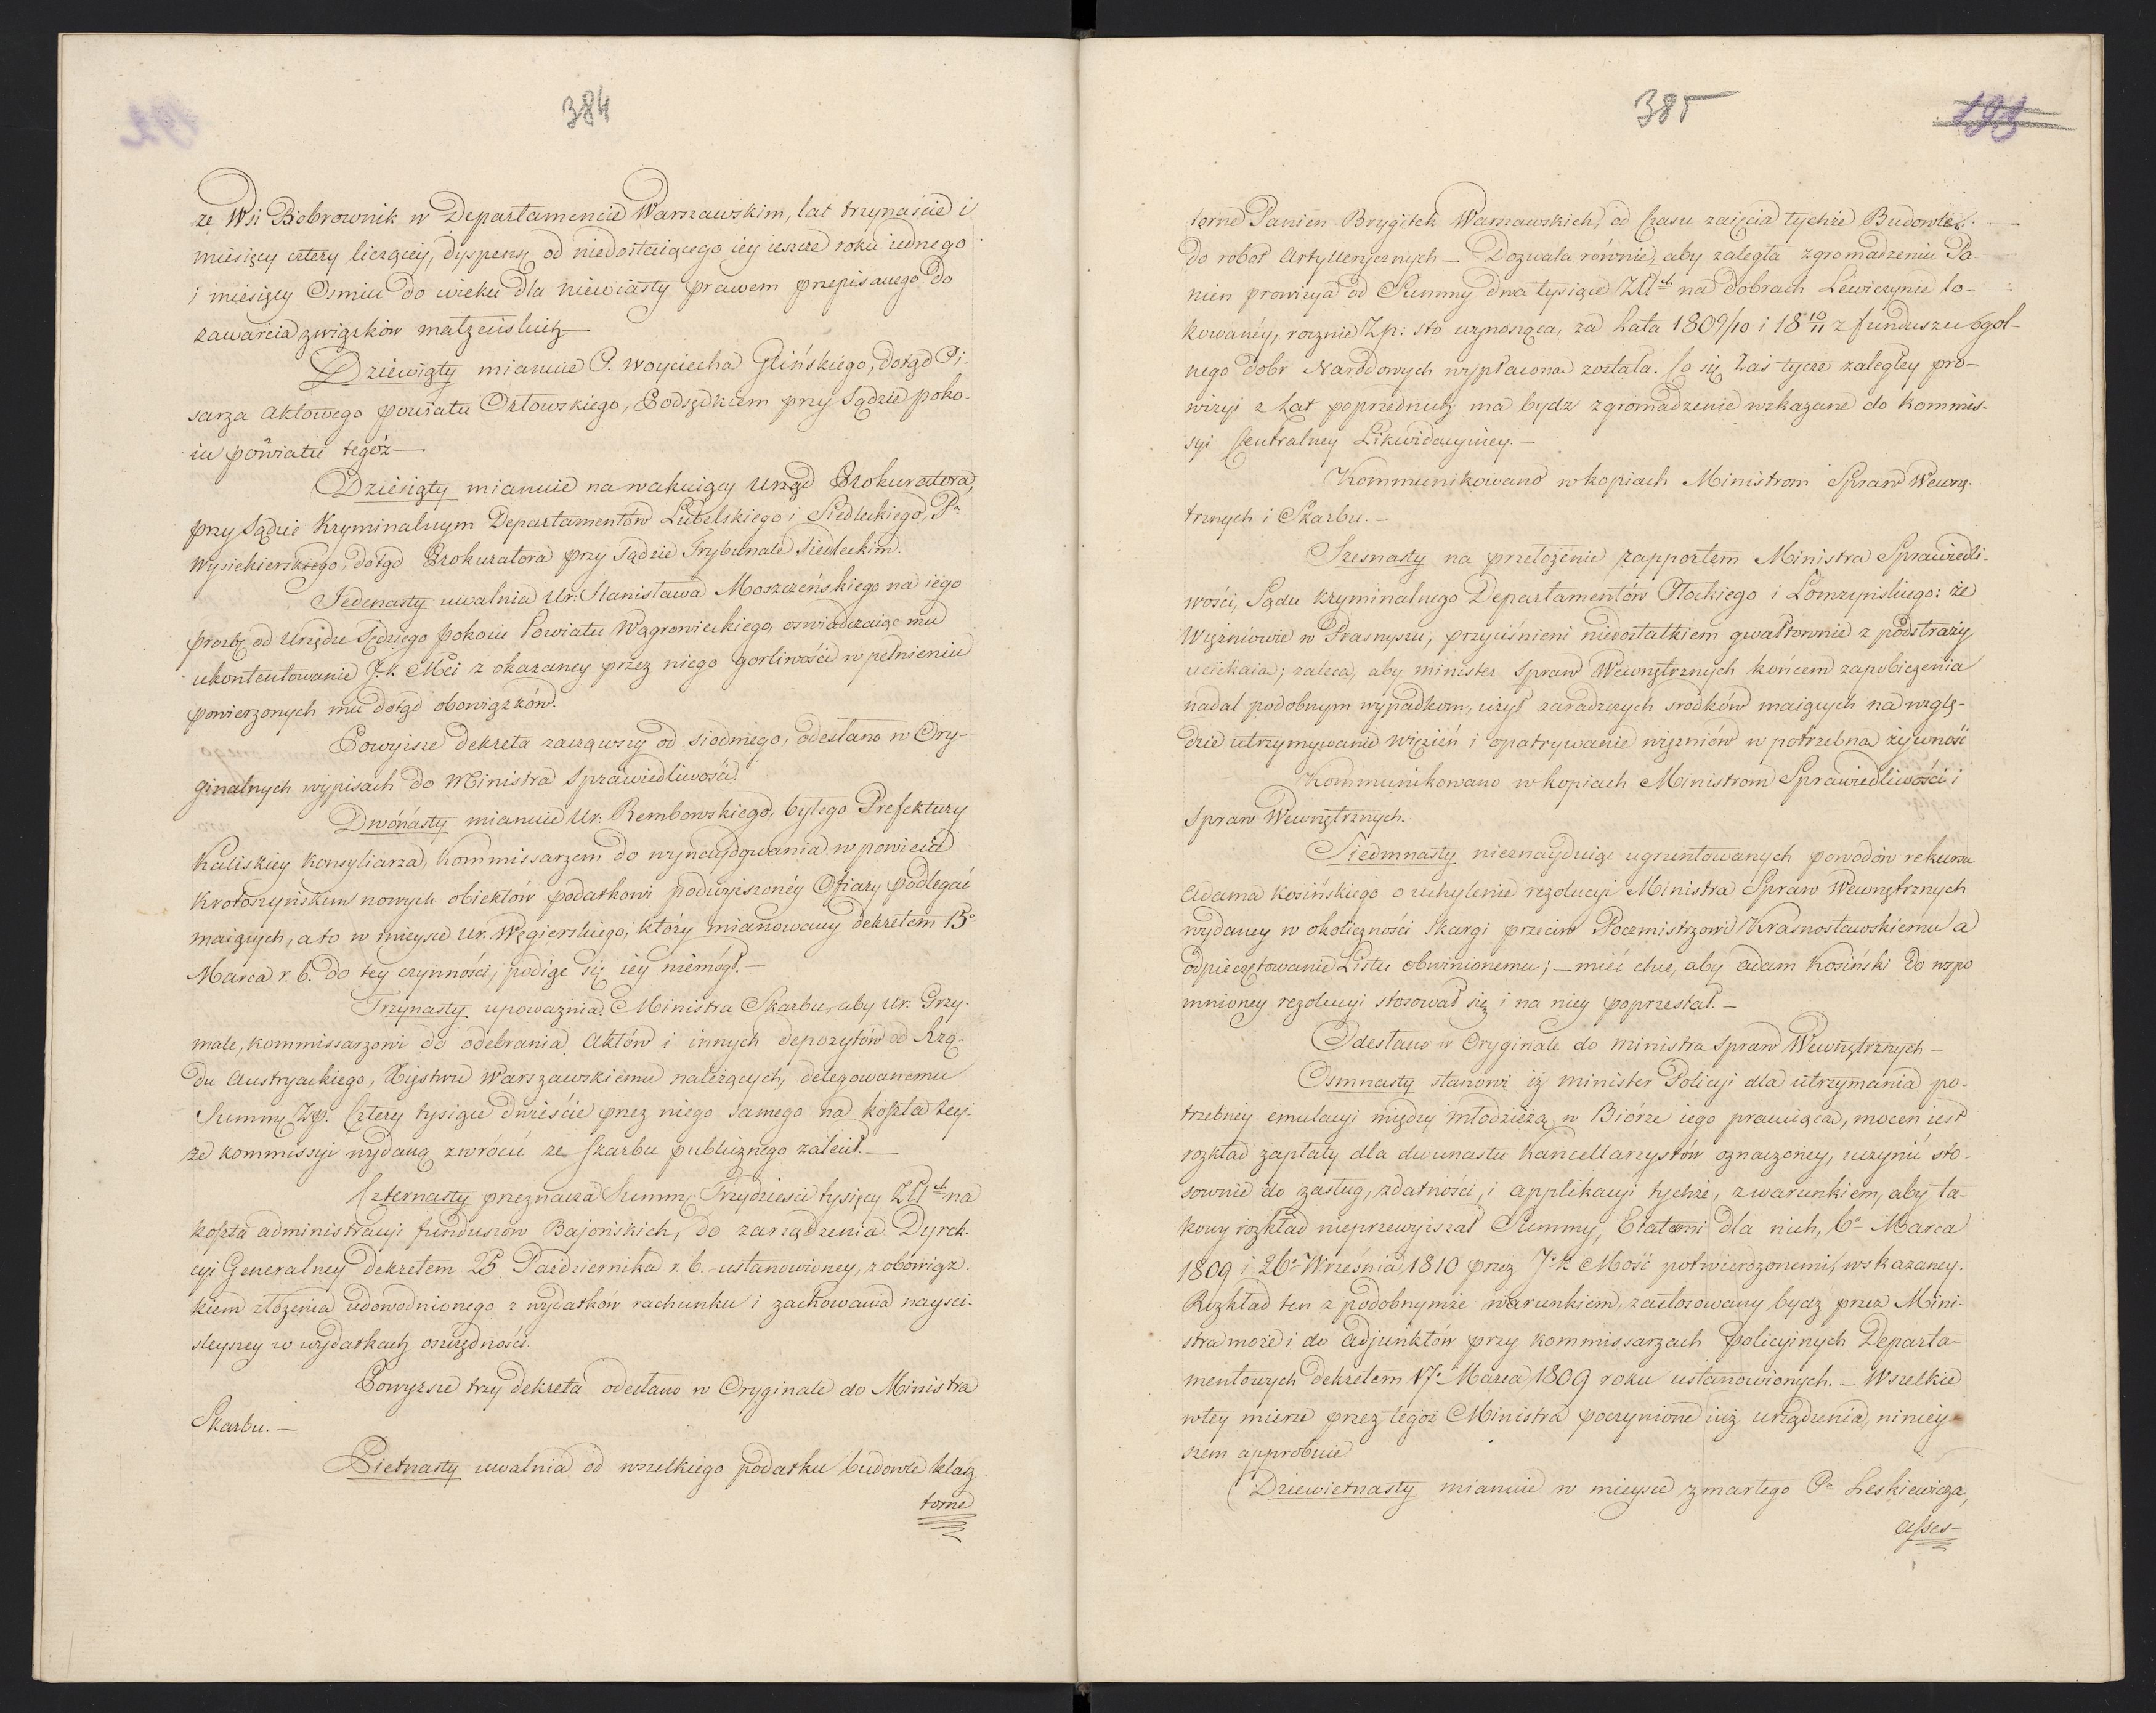 384
ze Wsi Biobrownik w Departamencie Warszawskim, lat trzynaście i
miesięcy cztery liczącey, dyspensę od niedostaiącego iey ieszcze roku iednego
i miesięcy Osmiu do wieku dla niewiasty prawem przepisanego do
zawarcia związków małżeńskich
Dziewiąty mianuie P. Woyciecha Glińskiego, dotąd Pi-
sarza Aktowego powiatu Orłowskiego, Podsędkiem przy Sądzie poko-
iu powiatu tegoż —
Dziesiąty mianuie na wakuiący Urząd Prokuratora,
przy Sądzie Kryminalnym Departamentów Lubelskiego i Siedleckiego, Pa
Wysiekierskiego, dotąd Prokuratora przy Sądzie Trybunale Siedleckim.
Jedenasty uwalnia Ur: Stanisława Moszczeńskiego na iego
prozbę od Urzędu Sędziego pokoiu Powiatu Wągrowieckiego, oswiadczaiąc mu
ukontentowanie J. K. Mci z okazaney przez niego gorliwości w pełnieniu
powierzonych mu dotąd obowiązków.
Powyższe dekreta zacząwszy od siodmego, odesłano w Ory-
ginalnych wypisach do Ministra Sprawiedliwości.
Dwónasty mianuie Ur: Rembowskiego, byłego Prefektury
Kaliskiey Konsyliarza, Kommissarzem do wynaydywania w powiecie
Krotoszyńskim nowych obiektów podatkowi podwyższoney Ofiary podlegać
maiących, a to w mieysce Ur. Węgierskiego, który mianowany dekretem 15o
Marca r. b. do tey czynności, podiąć się iey niemógł. —
Trzynasty upoważnia Ministra Skarbu, aby Ur: Grzy-
male, kommissarzowi do odebrania Aktów i innych depozytów od Rzą-
du Austryackiego, Xięstwu Warszawskiemu należących, delegowanemu
Summę Zp. Cztery tysiące dwieście przez niego samego na koszta tey-
że kommissyi wydaną zwrócić ze skarbu publicznego zalecił. —
Czternasty przeznacza Summę Trzydzieści tysięcy Złł na
koszta administracyi funduszów Bajońskich, do zarządzenia Dyrek-
cyi Generalney dekretem 25 Października r. b. ustanowioney, z obowiąz-
kiem złożenia udowodnionego z wydatków rachunku i zachowania nayści-
sleyszey w wydatkach oszczędności.
Powyższe trzy dekreta odesłano w Oryginale do Ministra
Skarbu. —
Pietnasty uwalnia od wszelkiego podatku budowle klasz
torne
385
193
torne Panien Brygitek Warszawskich, od Czasu zaięcia tychże Budowlę
do robot Artylleryznych — Dozwala równie, aby zaległa zgromadzeniu Pa-
nien prowizya od Summy dwa tysiące Złł na dobrach Lewiczynie lo-
kowanéy, rocznie Zp: sto wynosząca, za Lata 1809/10 i 1810/11 z funduszu ogol-
nego dobr Narodowych wypłacona została. Co się zaś tycze zaległey pro-
wizyi z Lat poprzednich, ma bydz zgromadzenie wskazane do Kommis-
syi Centralney Likwidacyiney. —
Kommunikowano w kopiach Ministrom Spraw Wewnę-
trznych i Skarbu. —
Szesnasty na przełożenie rapportem Ministra Sprawiedli-
wości, Sądu Kryminalnego Departamentów Płockiego i Łomżyńskiego: że
Więzniowie w Prasnyszu, przyciśnieni niedostatkiem gwałtownie z pod straży
uciekaią; zaleca, aby minister Spraw Wewnętrznych końcem zapobieżenia
nadal podobnym wypadkom, użył zaradczych srodków maiących na wzglę-
dzie utrzymywanie więzień i opatrywanie więzniów w potrzebną żywność
Kommunikowano w kopiach Ministrom Sprawiedliwości i
Spraw Wewnętrznych.
Siedmnasty nieznayduiąc ugruntowanych powodów rekursu
Adama Kosińskiego o uchylenie rezolucyi Ministra Spraw Wewnętrznych
wydaney w okoliczności Skargi przeciw Poczmistrzowi Krasnostawskiemu o
odpieczętowanie Listu obwinionemu; — mieć chce, aby Adam Kosiński do wspo
mnioney rezolucyi stosował się i na niey poprzestał. —
Odesłano w Oryginale do ministra Spraw Wewnętrznych —
Osmnasty stanowi iż minister Policyi dla utrzymania po-
trzebney emulacyi między młodzieżą w Biórze iego pracuiącą, mocen iest
rozkład zapłaty dla dwunastu Kancellarzystów oznaczoney, uczynić sto-
sownie do zasług, zdatności, i applikacyi tychże, z warunkiem, aby ta-
kowy rozkład nieprzewyższał Summy, Etatami dla nich, 6o Marca
1809 i 26o Września 1810 przez J. K. Mość potwierdzonemi, wskazaney.
Rozkład ten z podobnymże warunkiem, zastosowany bydz przez Mini-
stra może i do Adjunktów przy kommissarzach policyjnych Departa-
mentowych dekretem 17o Marca 1809 roku ustanowionych. — Wszelkie
w tey mierze przez tegoż Ministra poczynione iuż urządzenia, niniey-
szem approbuie
Dziewietnasty mianuie w mieysce zmarłego Pa Leskiewicza,
Asses-